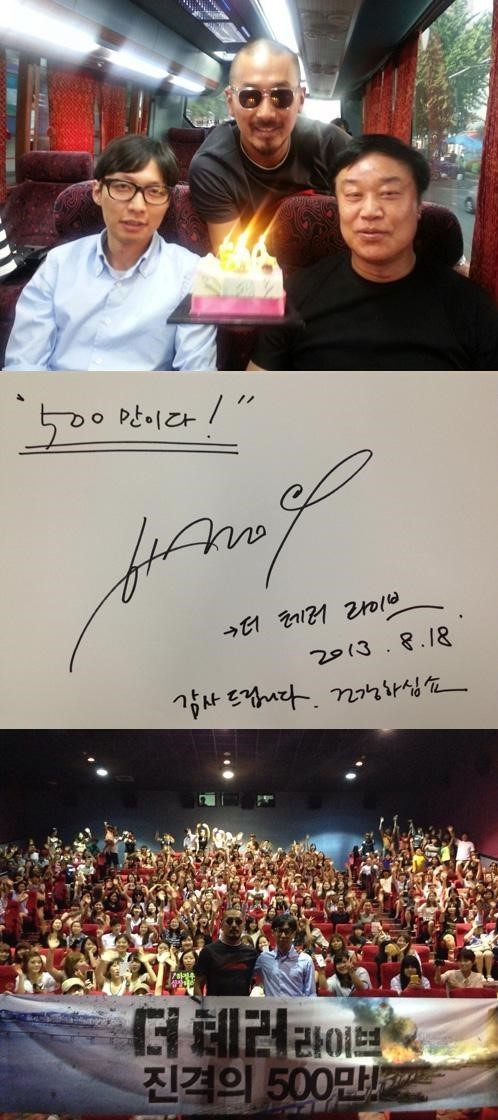 500
"500 만이다!"
→더 테러 라이브
2013. 8. 18.
감사드립니다. 건강하십쇼
더 테러 라이브
진격의 500만!